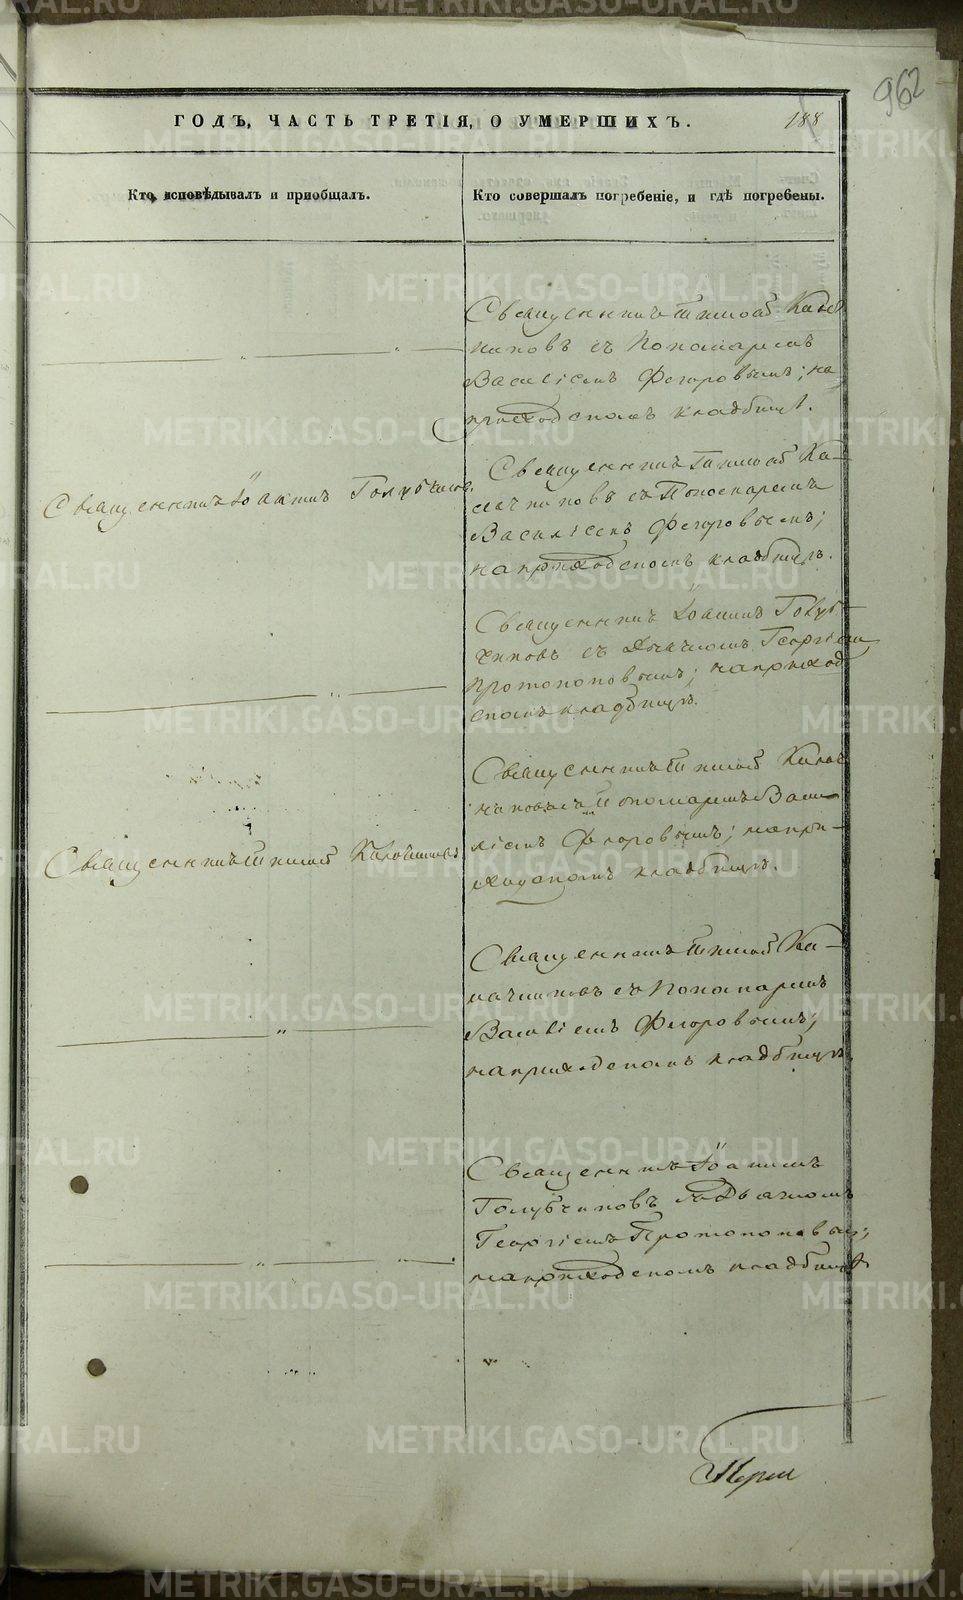 962
ГОДЪ, ЧАСТЬ ТРЕТІЯ, О УМЕРШИХЪ.
188
Кто исповѣдывалъ и приобщалъ.
Кто совершалъ погребеніе, и гдѣ погребены.
Священникъ Тимофей
съ Пономаремъ
Василіемъ Федоровымъ; на
приходскомъ кладбищѣ.
Священникъ Іоаннъ Голубчиковъ.
Священникъ Тимофей Ка-
лачниковъ съ Пономаремъ
Василіемъ Федоровымъ;
на приходскомъ кладбищѣ.
Священникъ Іоаннъ Голуб-
чиковъ съ Дьячкомъ Георгіемъ
Протопоповымъ; на приход-
скомъ кладбищѣ.
Священникъ Тимофей
Священникъ Тимофей
съ Пономаремъ Васи-
ліемъ Федоровымъ; на при-
ходскомъ кладбищѣ.
Священникъ Тимофей Ка-
лачниковъ съ Пономаремъ
Василіемъ Федоровымъ;
на приходскомъ кладбищѣ.
Священникъ Іоаннъ
Голубчиковъ съ Дьячкомъ
Георгіемъ Протопоповымъ;
на приходскомъ кладбищѣ
METRIKI.GASO-URAL.RU